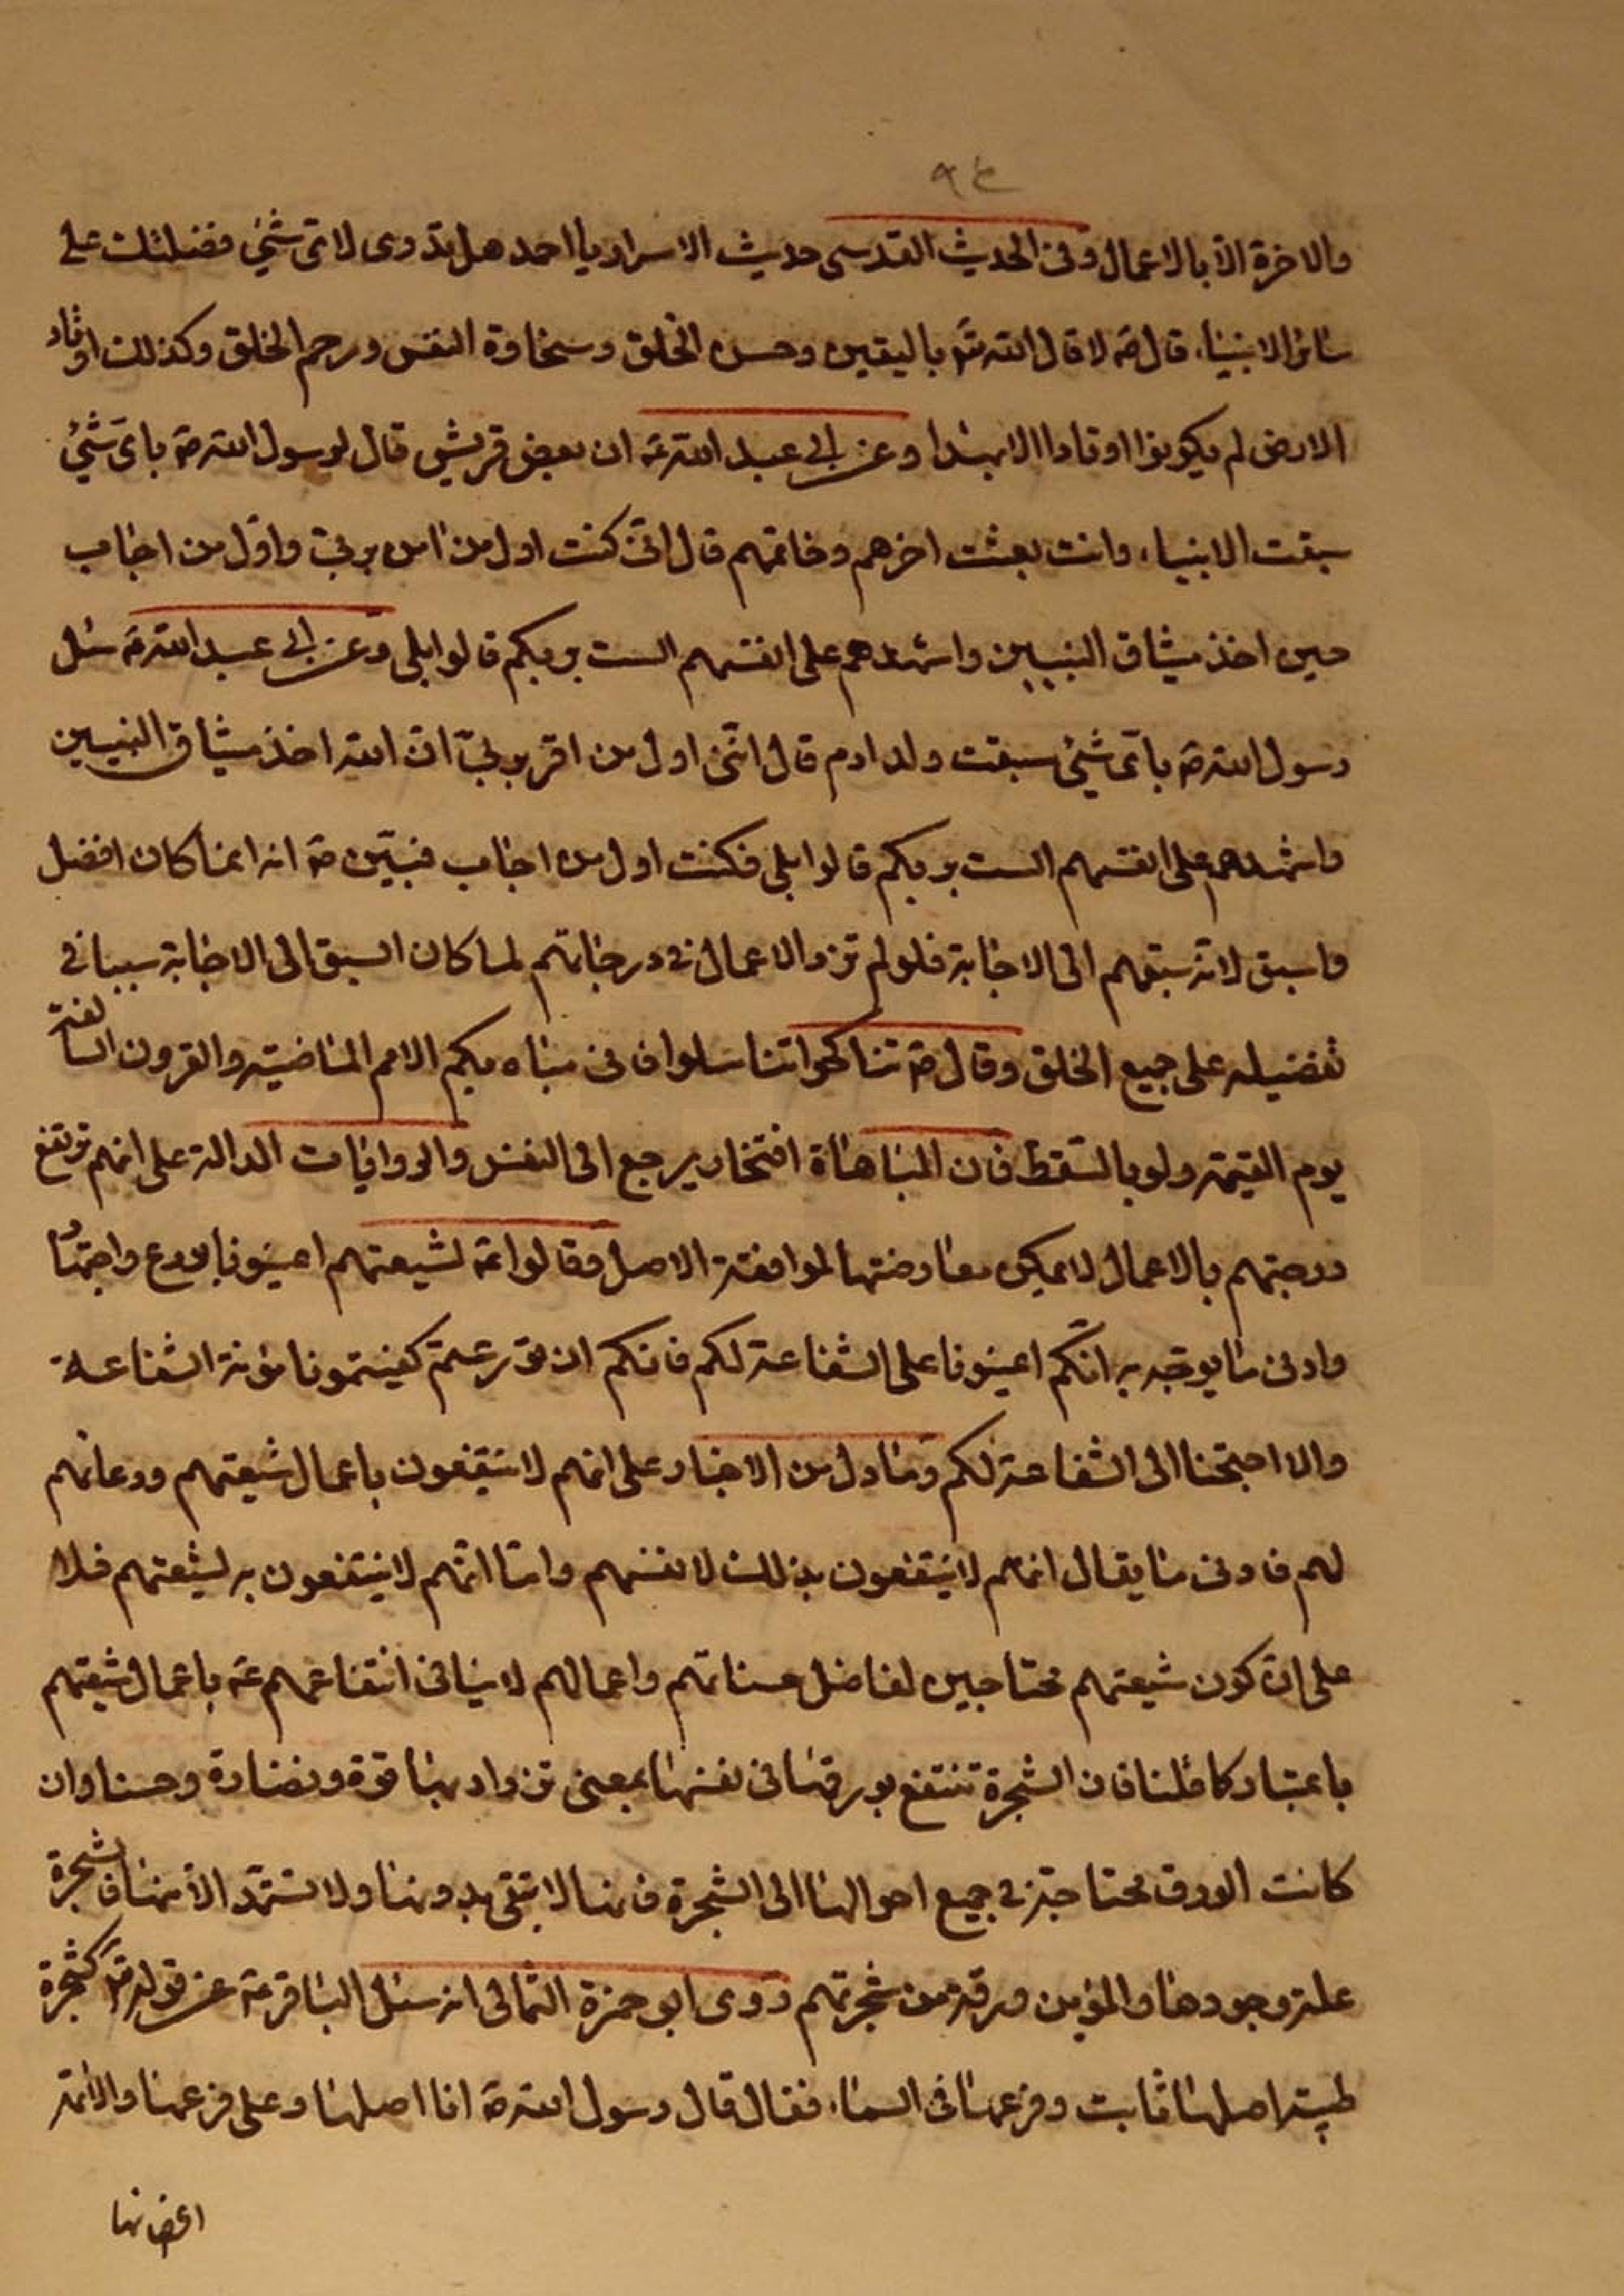 ٩٤
والاخرة الا بالاعمال وفى الحديث القدسى حديث الاسرار يا احمد هل تدرى لاى شئ فضلتك على
سائر الانبياء قال ص لا قال الله تع باليقين وحسن الخلق وسخاوة النفس ورحم الخلق وكذلك اوتاد
الارض لم يكونوا اوتادا الا بهذا وعن ابى عبد الله ع ان بعض قريش قال لرسول الله ص باى شئ
سبقت الانبياء وانت بعثت اخرهم وخاتمهم قال انى كنت اول من امن بربى واول من اجاب
حين اخذ ميثاق النبيين واشهدهم على انفسهم الست بربكم قالوا بلى وعن ابى عبد الله ع سئل
رسول الله ص باى شئ سبقت ولد ادم قال اننى اول من اقر بربى ان الله اخذ ميثاق النبيين
واشهدهم على انفسهم الست بربكم قالوا بلى فكنت اول من اجاب فبين ص انه انما كان افضل
واسبق لانه سبقهم الى الاجابة فلو لم تزد الاعمال فى درجاتهم لما كان السبق الى الاجابة سببا فى
تفضيله على جميع الخلق وقال ص تناكحوا تناسلوا فانى مباه بكم الامم الماضية والقرون السالفة
يوم القيمة ولو بالسقط فان المباهاة افتخار يرجع الى النفس والروايات الدالة على انهم ترتفع
درجتهم بالاعمال لا يمكن معارضتها لموافقة الاصل فقالوا ع لشيعتهم اعينونا بورع واجتهاد
وادنى ما يوجه به انكم اعينونا على الشفاعة لكم فانكم ان تورعتم كفيتمونا مؤنة الشفاعة
والا احتجنا الى الشفاعة لكم وما دل من الاخبار على انهم لا ينتفعون باعمال شيعتهم ودعائهم
لهم فادنى ما يقال انهم لا ينتفعون بذلك لانفسهم واما انهم لا ينتفعون به لشيعتهم فلا
على ان كون شيعتهم محتاجين لفاضل حسناتهم واعمالهم لا ينافى انتفاعهم ع باعمال شيعتهم
باعتبار كما قلنا فان الشجرة تنتفع بورقها فى نفسها بمعنى تزداد بها قوة ونضارة وحسنا وان
كانت الورق محتاجة فى جميع احوالها الى الشجرة فانها لا تبقى بدونها ولا تستمد الا منها فالشجرة
علة وجودها والمؤمن ورقة من شجرتهم روى ابو حمزة الثمالى انه سئل الباقر ع عن قوله تع كشجرة
طيبة اصلها ثابت وفرعها فى السماء فقال قال رسول الله ص انا اصلها وعلى فرعها والائمة
اغصانها